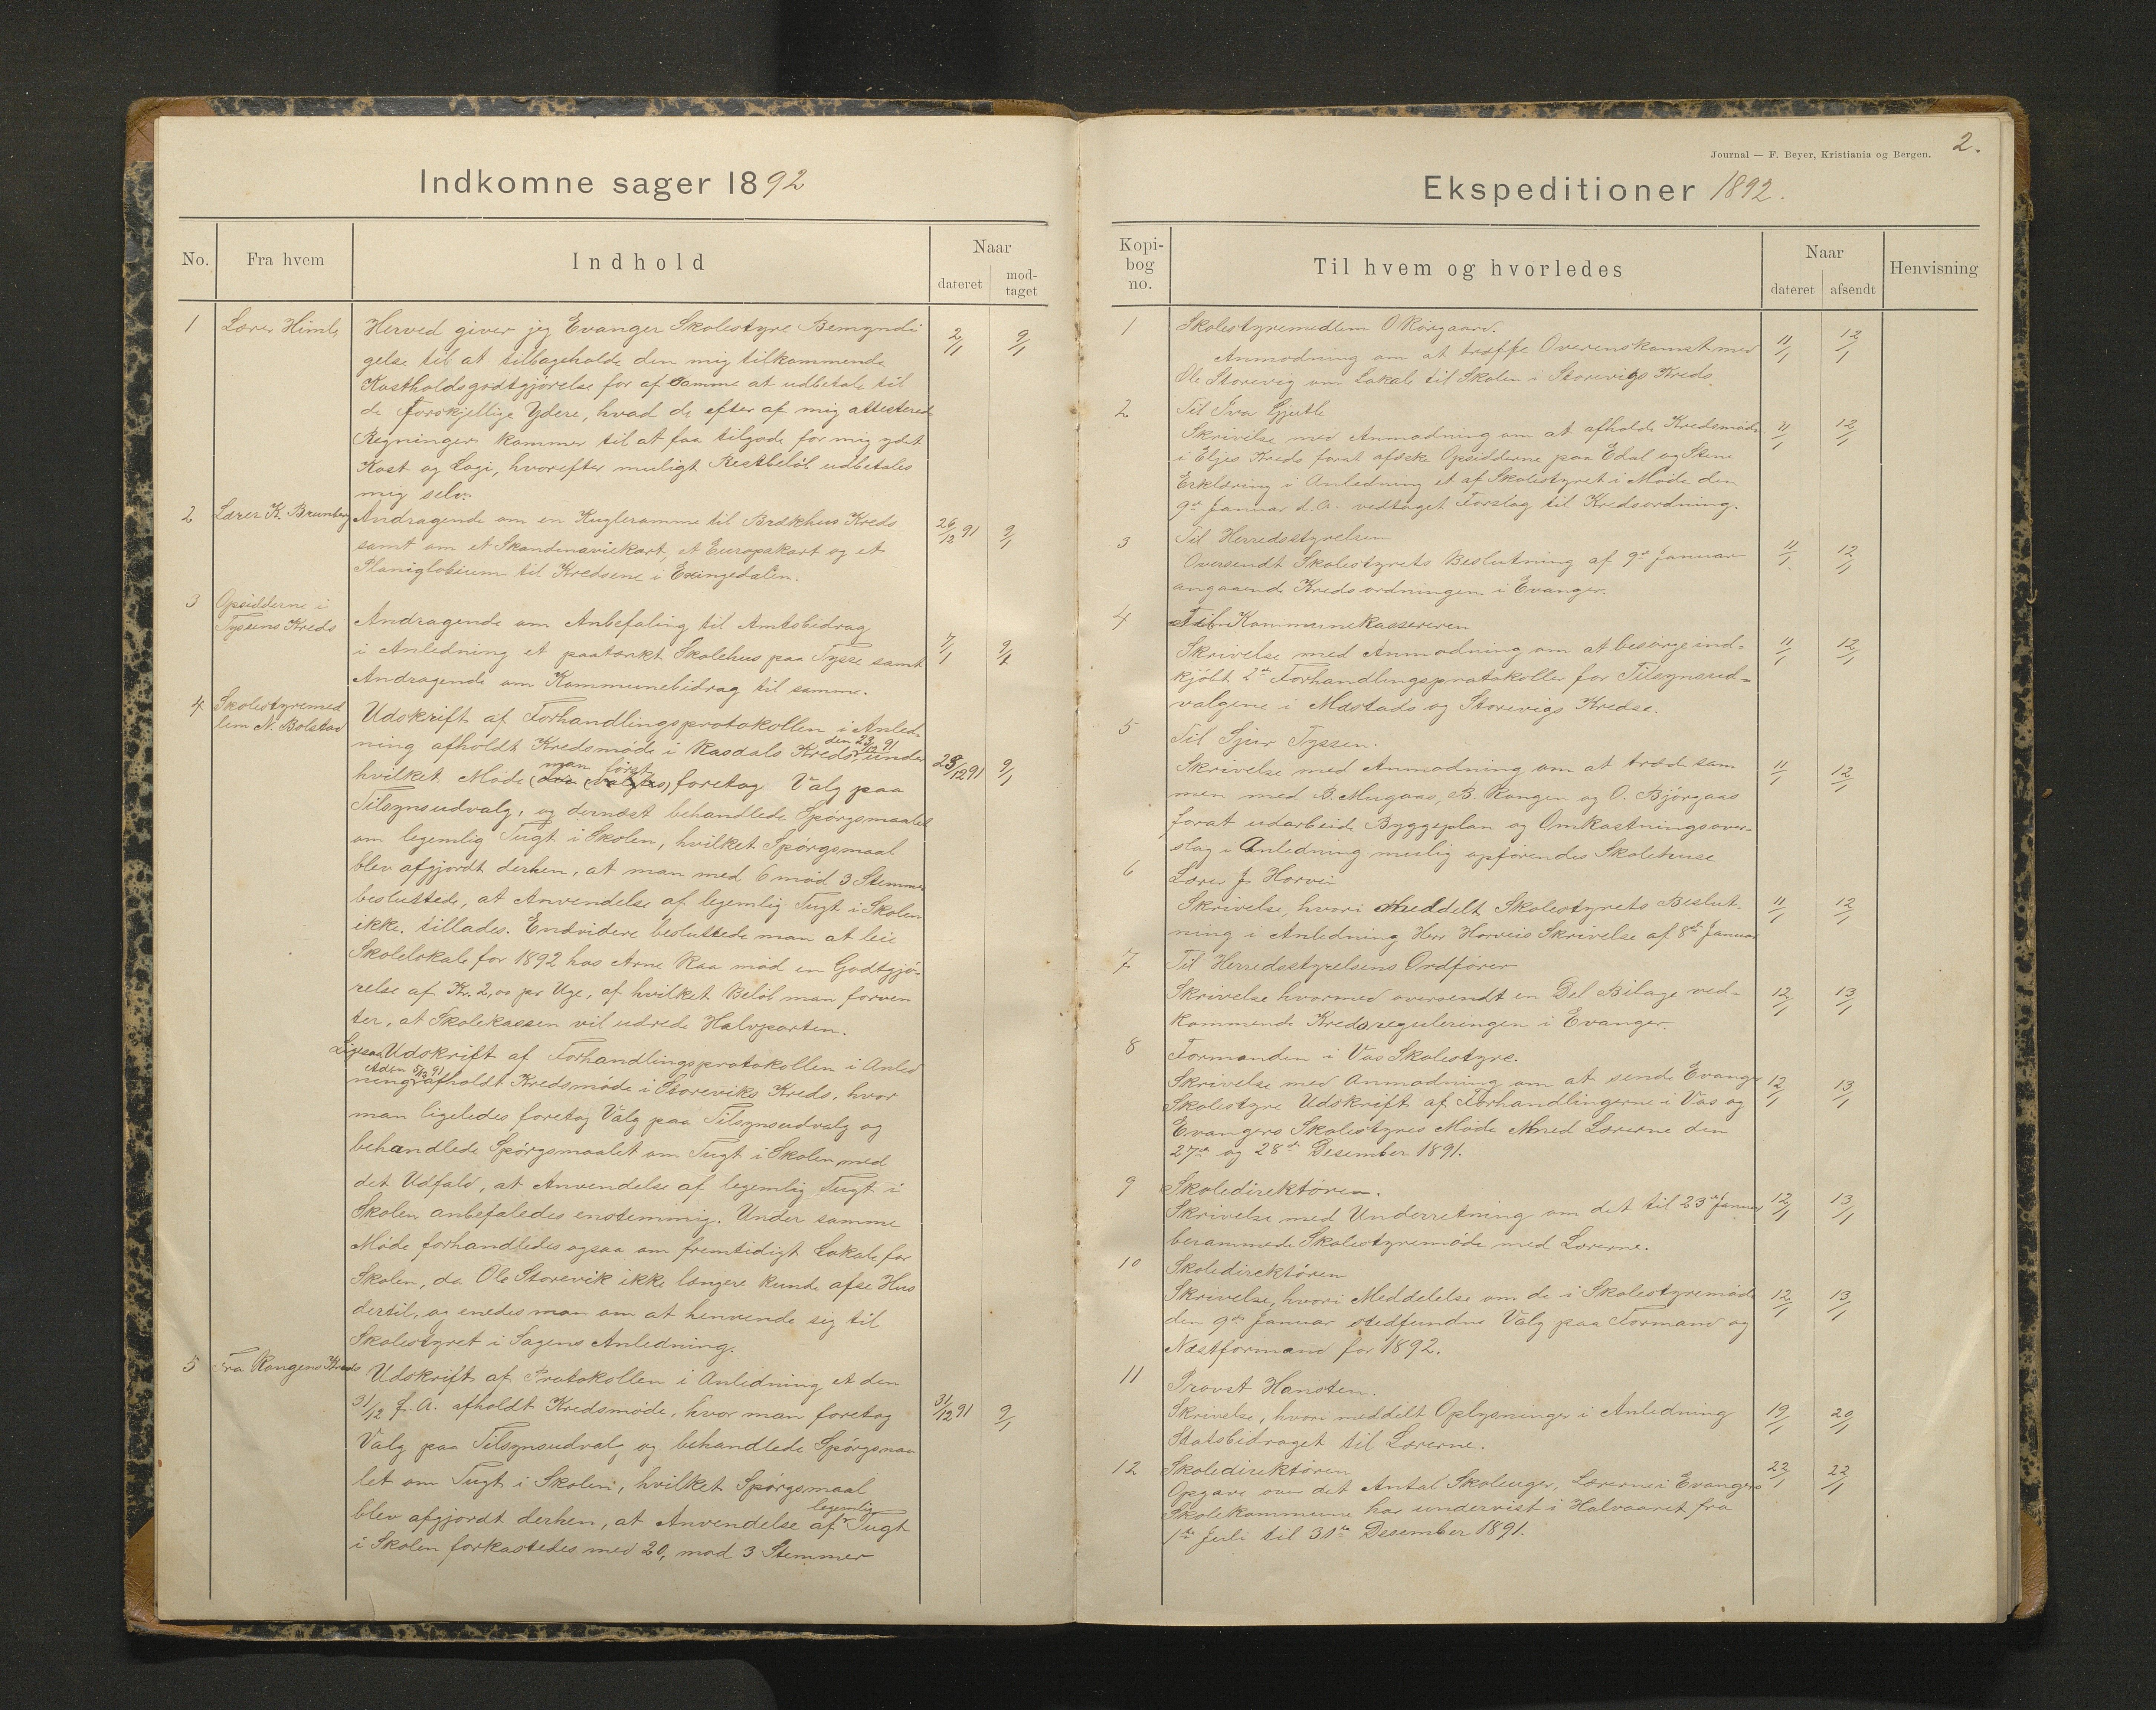 Indkomne sager 1892
No.
Fra hvem
Indhold
Naar
dateret
mod-
taget
1 Lærer Himle Herved giver jeg Evanger Skolestyre Bemyndi 2/1 9/1
gelse til at tilbageholde den mig tilkommende
Kostholdsgodtgjörelse for af samme at udbetale til
de forskjellige Ydere, hvad de efter af mig attesterede
Regninger kommer til at faa tilgode for mig ydet
Kost og Logi, hvorefter muligt Restbelöb udbetales
mig selv.
2 Lærer K. Brunborg Andragende om en Kugleramme til Brækhus Kreds 26/12 91 9/1
samt om et Skandinaviekart, et Europakart og et
Planiglobium til Kredsene i Exingedalen.
3 Opsidderne i
Tyssens Kreds Andragende om Anbefaling til Amtsbidrag 7/1 9/1
i Anledning et paatænkt Skolehus paa Tysse samt
Andragende om Kommunebidrag til samme.
4 Skolestyremed
lem N. Bolstad Udskrift af Forhandlingsprotokollen i Anled-
ning afholdt Kredsmöde i Rasdals Kreds den 23/12 91 under 23/12 91 9/1
hvilket Möde man först foretog Valg paa
Tilsynsudvalg, og dernæst behandlede Spörgsmaalet
om legemlig Tugt i Skolen, hvilket Spörgsmaal
blev afgjordt derhen, at man med 6 mod 3 Stemmer
besluttede, at Anvendelse af legemlig Tugt i Skolen
ikke tillades. Endvidere besluttede man at leie
Skolelokale for 1892 hos Arne Raa mod en Godtgjö-
relse af Kr. 2,00 pr Uge, af hvilket Belöb man forven
ter, at Skolekassen vil udrede Halvparten.
Ligesaa Udskrift af Forhandlingsprotokollen i Anled
ning et den 5/12 91 afholdt Kredsmöde i Storeviks Kreds, hvor
man ligeledes foretog Valg paa Tilsynsudvalg og
behandlede Spörgsmaalet om Tugt i Skolen med
det Udfald, at Anvendelse af legemlig Tugt i
Skolen anbefaledes enstemmig. Under samme
Möde forhandledes ogsaa om fremtidigt Lokale for
Skolen, da Ole Storevik ikke længere kunde afse Hus
dertil, og enedes man om at henvende sig til
Skolestyret i Sagens Anledning.
5 Fra Rongens Kreds Udskrift af Protokollen i Anledning et den
31/12 f. A. afholdt Kredsmöde, hvor man foretog 31/12 91 9/1
Valg paa Tilsynsudvalg og behandlede Spörgsmaa
let om Tugt i Skolen, hvilket Spörgsmaal
blev afgjordt derhen, at Anvendelse af legemlig Tugt
i Skolen forkastedes med 20, mod 3 Stemmer
2.
Journal — F. Beyer, Kristiania og Bergen.
Ekspeditioner 1892.
Kopi-
bog
no.
Til hvem og hvorledes
Naar
dateret
afsendt
Henvisning
1 Skolestyremedlem O Rörgaard.
Anmodning om at træffe Overenskomst med 11/1 12/1
Ole Storevig om Lokale til Skolen i Storevigs Kreds
2 Til Iva Gjerde
Skrivelse med Anmodning om at afholde Kredsmöde 11/1 12/1
i Eljes Kreds forat afæske Opsidderne paa Edal og Stene
Erklæring i Anledning et af Skolestyret i Möde den
9de Januar d. A. vedtaget Forslag til Kredsordning.
3 Til Herredsstyrelsen
Oversendt Skolestyrets Beslutning af 9de Januar 11/1 12/1
angaaende Kredsordningen i Evanger.
4 Til Kommunekassereren
Skrivelse med Anmodning om at besörge ind- 11/1 12/1
kjöbt 2de Forhandlingsprotokoller for Tilsynsud-
valgene i Mæstads og Storevigs Kredse.
5 Til Sjur Tyssen.
Skrivelse med Anmodning om at træde sam 11/1 12/1
men med B. Mugaas, B. Rongen og O. Bjørgaas
forat udarbeide Byggeplan og Omkastningsover-
slag i Anledning mulig opförendes Skolehuse
6 Lærer J. Horvei
Skrivelse, hvori meddelt Skolestyrets Beslut- 11/1 12/1
ning i Anledning Herr Horveis Skrivelse af 8de Januar
7 Til Herredsstyrelsens Ordförer
Skrivelse hvormed oversendt en Del Bilage ved- 12/1 13/1
kommende Kredsreguleringen i Evanger.
8 Formanden i Vos Skolestyre.
Skrivelse med Anmodning om at sende Evanger 12/1 13/1
Skolestyre Udskrift af Forhandlingerne i Vos og
Evangers Skolestyres Möde med Lærerne den
27de og 28de Desember 1891.
9 Skoledirektören.
Skrivelse med Underretning om det til 23de Januar 12/1 13/1
berammede Skolestyremöde med Lærerne.
10 Skoledirektören
Skrivelse, hvori Meddelelse om de i Skolestyremöde 12/1 13/1
den 9de Januar stedfundne Valg paa Formand og
Næstformand for 1892.
11 Provst Hansten.
Skrivelse, hvori meddelt Oplysninger i Anledning 19/1 20/1
Statsbidraget til Lærerne.
12 Skoledirektören 22/1 22/1
Opgave over det Antal Skoleuger, Lærerne i Evangers
Skolekommune har undervist i Halvaaret fra
1ste Juli til 31te Desember 1891.